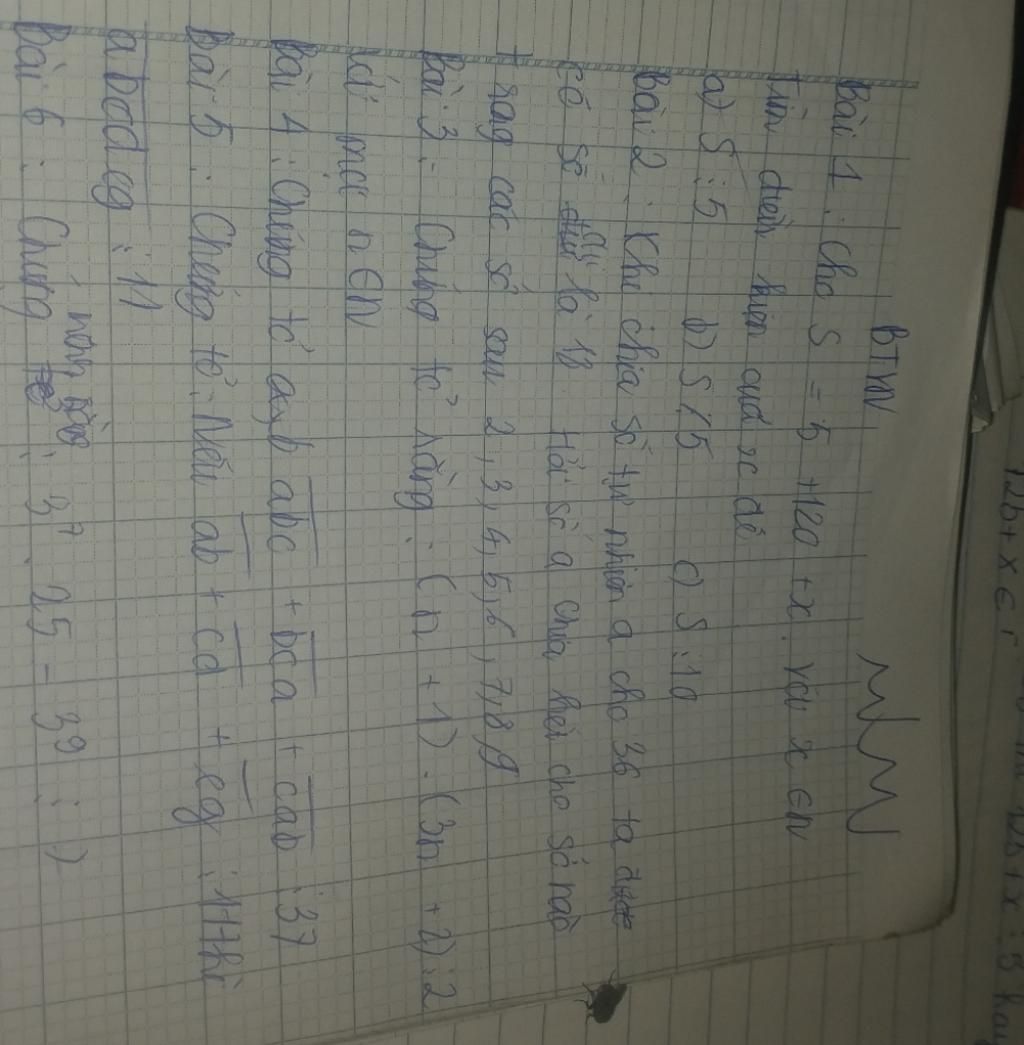 BTVN
Bài 1 : Cho S = 5 + 120 + x. Với x ∈ N
Tìm điều kiện của x để
a) S ⋮ 5 b) S ⋮̸ 5 c) S ⋮ 10
Bài 2 : Khi chia số tự nhiên a cho 36 ta được
có số dư là 12 Hỏi số a chia hết cho số nào
trong các số sau 2, 3, 4, 5, 6, 7, 8, 9
Bài 3 : Chứng tỏ rằng : (n + 1) . (3n + 2) ⋮ 2
với mọi n ∈ N
Bài 4 : Chứng tỏ a,b abc + bca + cab ⋮ 37
Bài 5 : Chứng tỏ : Nếu ab + cd + eg ⋮ 11 thì
abcdeg ⋮ 11
Bài 6 : Chứng minh : 3⁷ . 25 - 39 ⋮
12b + x ∈